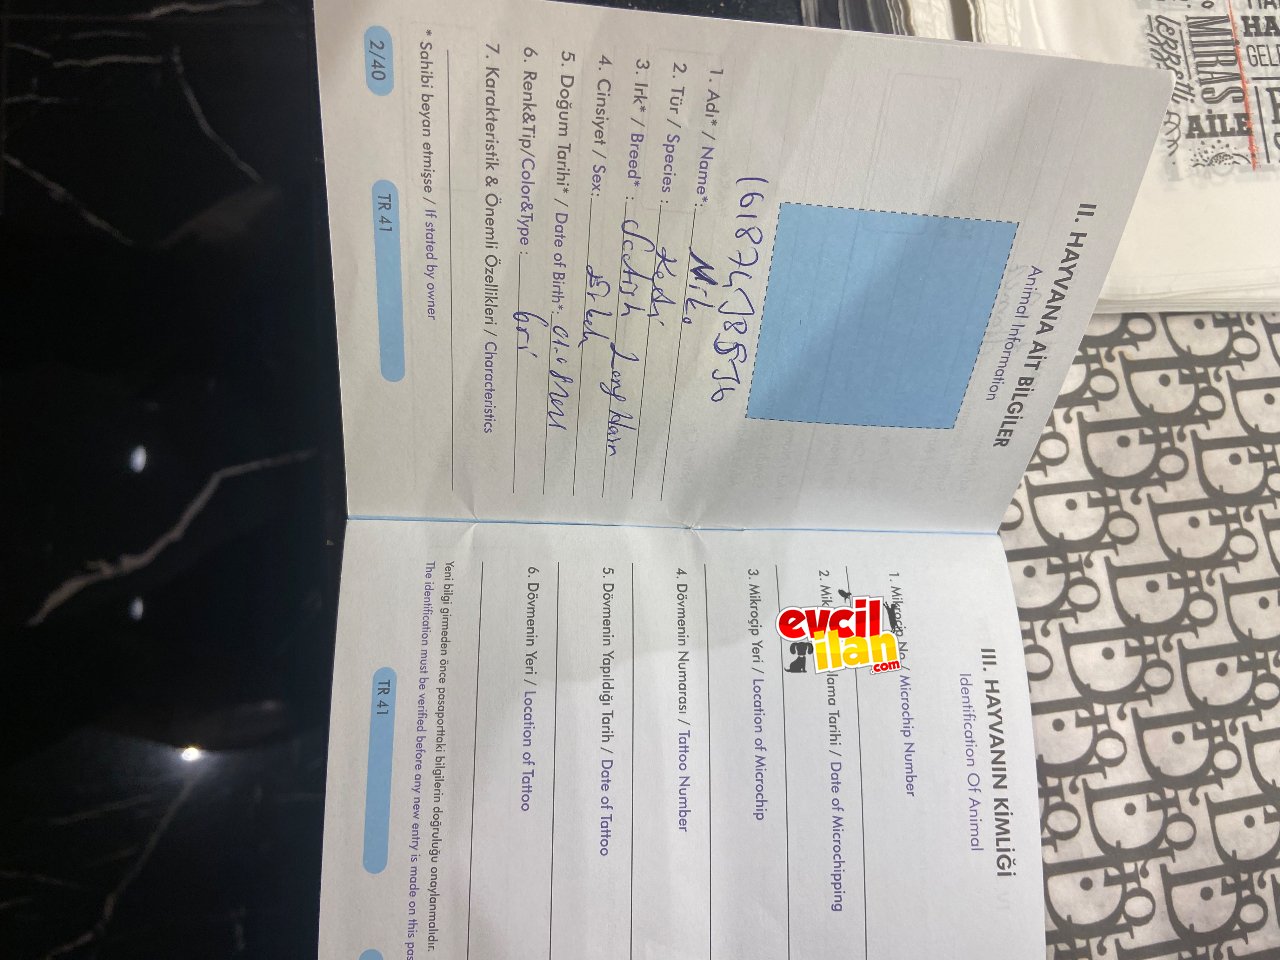 II. HAYVANA AİT BİLGİLER
Animal Information
1. Adı* / Name*: Miko
2. Tür / Species : Kedi
3. Irk* / Breed* : Scotish Long Hair
4. Cinsiyet / Sex: Erkek
5. Doğum Tarihi* / Date of Birth*:
6. Renk&Tip/Color&Type : Gri
7. Karakteristik & Önemli Özellikleri / Characteristics
* Sahibi beyan etmişse / If stated by owner
2/40
TR 41
III. HAYVANIN KİMLİĞİ
Identification Of Animal
1. Mikroçip No / Microchip Number
2. Mik lama Tarihi / Date of Microchipping
3. Mikroçip Yeri / Location of Microchip
4. Dövmenin Numarası / Tattoo Number
5. Dövmenin Yapıldığı Tarih / Date of Tattoo
6. Dövmenin Yeri / Location of Tattoo
Yeni bilgi girmeden önce pasaporttaki bilgilerin doğruluğu onaylanmalıdır.
The identification must be verified before any new entry is made on this pas
TR 41
evcil
ilan
.com
MİRAS
AİLE